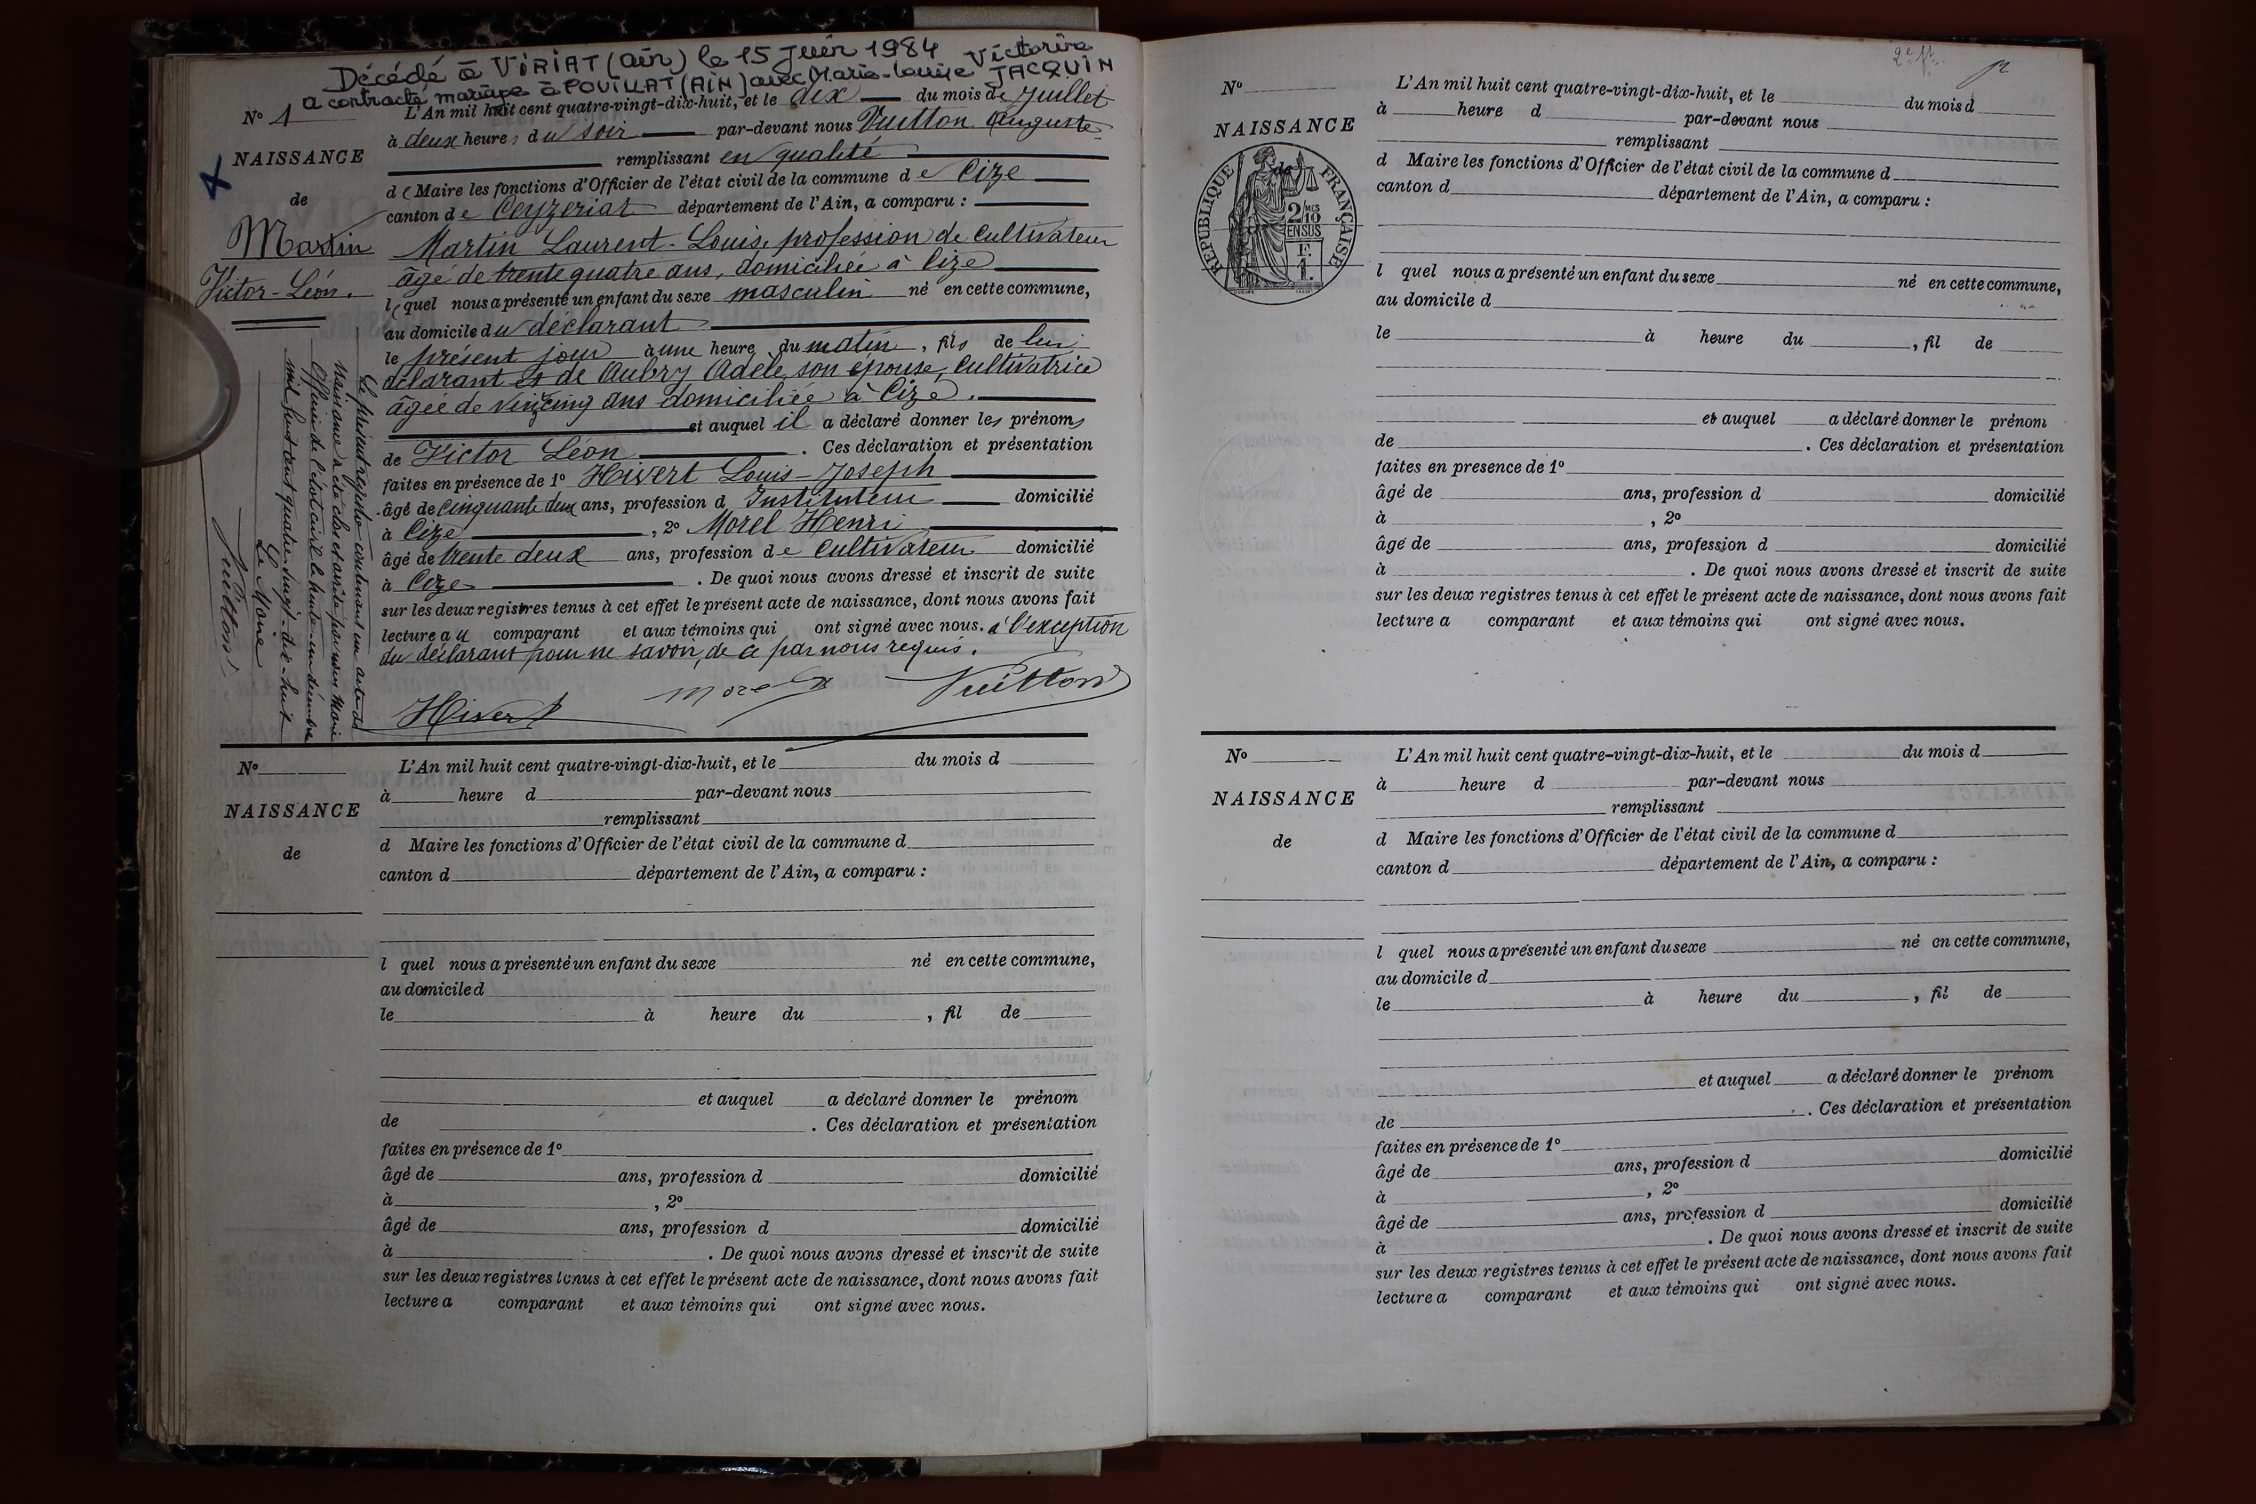 Décédé à VIRIAT (Ain) le 15 Juin 1984
a contracté mariage à POUILLAT (AIN) avec Marie-Louise Victorine JACQUIN
N° 1
NAISSANCE
de
Martin
Victor-Léon.
L'An mil huit cent quatre-vingt-dix-huit, et le dix du mois de Juillet
à deux heures du soir par-devant nous Vuitton Auguste
remplissant en qualité
de Maire les fonctions d'Officier de l'état civil de la commune de Cize
canton de Ceyzeriat département de l'Ain, a comparu :
Martin Laurent-Louis, profession de Cultivateur
âgé de trente quatre ans, domiciliée à Cize
lequel nous a présenté un enfant du sexe masculin né en cette commune,
au domicile du déclarant
le présent jour à une heure du matin, fils de lui
déclarant et de Aubry Adèle, son épouse, Cultivatrice
âgée de vingcinq ans domiciliée à Cize.
et auquel il a déclaré donner les prénoms
de Victor Léon. Ces déclaration et présentation
faites en présence de 1° Hivert Louis-Joseph
âgé de cinquante deux ans, profession d Instituteur domicilié
à Cize, 2° Morel Henri
âgé de trente deux ans, profession de Cultivateur domicilié
à Cize. De quoi nous avons dressé et inscrit de suite
sur les deux registres tenus à cet effet le présent acte de naissance, dont nous avons fait
lecture au comparant et aux témoins qui ont signé avec nous. à l'exception
du déclarant pour ne savoir, de ce par nous requis.
Hivert Morel Vuitton
Le présent registre contenant un acte de
Naissance a été clos et arrêté par nous Maire
Officier de l'état civil le trente-un décembre
mil huit cent quatre-vingt-dix-huit
Le Maire
Vuitton
N°
NAISSANCE
de
L'An mil huit cent quatre-vingt-dix-huit, et le du mois d
à heure d par-devant nous
remplissant
d Maire les fonctions d'Officier de l'état civil de la commune d
canton d département de l'Ain, a comparu :
l quel nous a présenté un enfant du sexe né en cette commune,
au domicile d
le à heure du , fil de
et auquel a déclaré donner le prénom
de . Ces déclaration et présentation
faites en présence de 1°
âgé de ans, profession d domicilié
à , 2°
âgé de ans, profession d domicilié
à . De quoi nous avons dressé et inscrit de suite
sur les deux registres tenus à cet effet le présent acte de naissance, dont nous avons fait
lecture a comparant et aux témoins qui ont signé avec nous.
N°
NAISSANCE
de
RÉPUBLIQUE FRANÇAISE
2/10
MES
EN SUS
F.
1.
L'An mil huit cent quatre-vingt-dix-huit, et le du mois d
à heure d par-devant nous
remplissant
d Maire les fonctions d'Officier de l'état civil de la commune d
canton d département de l'Ain, a comparu :
l quel nous a présenté un enfant du sexe né en cette commune,
au domicile d
le à heure du , fil de
et auquel a déclaré donner le prénom
de . Ces déclaration et présentation
faites en presence de 1°
âgé de ans, profession d domicilié
à , 2°
âgé de ans, profession d domicilié
à . De quoi nous avons dressé et inscrit de suite
sur les deux registres tenus à cet effet le présent acte de naissance, dont nous avons fait
lecture a comparant et aux témoins qui ont signé avec nous.
N°
NAISSANCE
de
L'An mil huit cent quatre-vingt-dix-huit, et le du mois d
à heure d par-devant nous
remplissant
d Maire les fonctions d'Officier de l'état civil de la commune d
canton d département de l'Ain, a comparu :
l quel nous a présenté un enfant du sexe né en cette commune,
au domicile d
le à heure du , fil de
et auquel a déclaré donner le prénom
de . Ces déclaration et présentation
faites en présence de 1°
âgé de ans, profession d domicilié
à , 2°
âgé de ans, profession d domicilié
à . De quoi nous avons dressé et inscrit de suite
sur les deux registres tenus à cet effet le présent acte de naissance, dont nous avons fait
lecture a comparant et aux témoins qui ont signé avec nous.